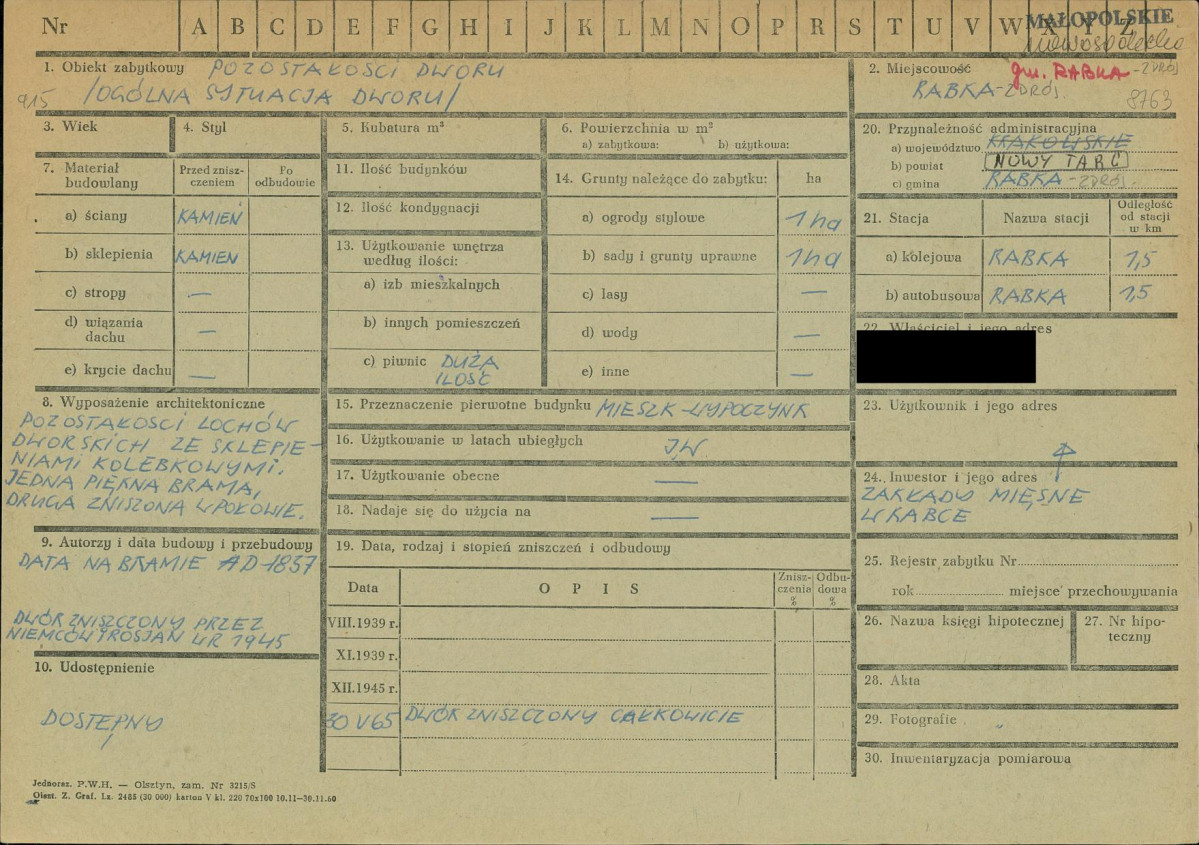 Nr A B C D E F G H I J K L M N O P R S T U V W X Y Z
MAŁOPOLSKIE
nowosądeckie
1. Obiekt zabytkowy POZOSTAŁOSCI DWORU
915 /OGÓLNA SYTUACJA DWORU/
2. Miejscowość gm. RABKA-ZDRÓJ
RABKA-ZDRÓJ.
8763
3. Wiek
4. Styl
5. Kubatura m³
6. Powierzchnia w m²
a) zabytkowa: b) użytkowa:
7. Materiał budowlany
Przed znisz-
czeniem
Po
odbudowie
a) ściany KAMIEŃ
b) sklepienia KAMIEŃ
c) stropy —
d) wiązania
dachu —
e) krycie dachu —
8. Wyposażenie architektoniczne
POZOSTAŁOSCI LOCHÓW
DWORSKICH ZE SKLEPIE-
NIAMI KOLEBKOWYMI.
JEDNA PIĘKNA BRAMA,
DRUGA ZNISZONA W POŁOWIE.
9. Autorzy i data budowy i przebudowy
DATA NA BRAMIE AD-1837
DWÓR ZNISZCZONY PRZEZ
NIEMCÓW I ROSJAN W R 1945
10. Udostępnienie
DOSTĘPNY
11. Ilość budynków
12. Ilość kondygnacji
13. Użytkowanie wnętrza
według ilości:
a) izb mieszkalnych
b) innych pomieszczeń
c) piwnic DUŻA
ILOŚĆ
14. Grunty należące do zabytku: ha
a) ogrody stylowe 1 ha
b) sady i grunty uprawne 1 ha
c) lasy —
d) wody —
e) inne —
15. Przeznaczenie pierwotne budynku MIESZK-WYPOCZYNK
16. Użytkowanie w latach ubiegłych JW
17. Użytkowanie obecne —
18. Nadaje się do użycia na —
19. Data, rodzaj i stopień zniszczeń i odbudowy
Data
O P I S
Znisz-
czenia
%
Odbu-
dowa
%
VIII.1939 r.
XI.1939 r.
XII.1945 r.
30 V 65 DWÓR ZNISZCZONY CAŁKOWICIE
20. Przynależność administracyjna
a) województwo KRAKOWSKIE
b) powiat NOWY TARG
c) gmina RABKA-ZDRÓJ.
21. Stacja
Nazwa stacji
Odległość
od stacji
w km
a) kolejowa RABKA 1,5
b) autobusowa RABKA 1,5
22. Właściciel i jego adres
23. Użytkownik i jego adres
24. Inwestor i jego adres
ZAKŁADY MIĘSNE
W RABCE
25. Rejestr zabytku Nr
rok miejsce przechowywania
26. Nazwa księgi hipotecznej
27. Nr hipo-
teczny
28. Akta
29. Fotografie
30. Inwentaryzacja pomiarowa
Jednoraz. P.W.H. — Olsztyn, zam. Nr 3215/S
Olszt. Z. Graf. Lz. 2485 (30 000) karton V kl. 220 70x100 10.11—30.11.60